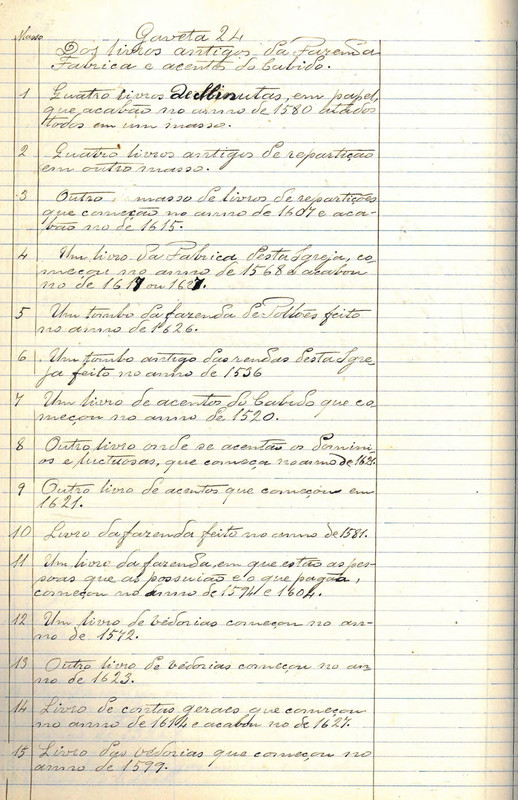 Gaveta 24
Masso
Dos livros antigos da Fazenda
Fabrica e acentos do Cabido.
1 Quatro livros de Minutas, em papel,
que acabão no anno de 1580 atados
todos em um masso.
2 Quatro livros antigos de repartição
em outro masso.
3 Outro masso de livros de repartições
que começão no anno de 1607 e aca-
bão no de 1615.
4 Um livro da Fabrica desta Igreja, co-
meçou no anno de 1568 e acabou
no de 1617 ou 1627.
5 Um tombo da fazenda de feito
no anno de 1626.
6 Um tombo antigo das rendas desta Igre-
ja feito no anno de 1536
7 Um livro de acentos do Cabido que co-
meçou no anno de 1520.
8 Outro livro onde se acentão os domini-
os e luctuosas, que começa no anno de 1621.
9 Outro livro de acentos que começou em
1621.
10 Livro da fazenda feito no anno de 1581.
11 Um livro da fazenda, em que estão as pes-
soas que as possuião e o que pagão,
começou no anno de 1594 e 1604.
12 Um livro de vedorias começou no an-
no de 1572.
13 Outro livro de vedorias começou no an-
no de 1623.
14 Livro de contas geraes que começou
no anno de 1614 e acabou no de 1627.
15 Livro das vedorias que começou no
anno de 1599.